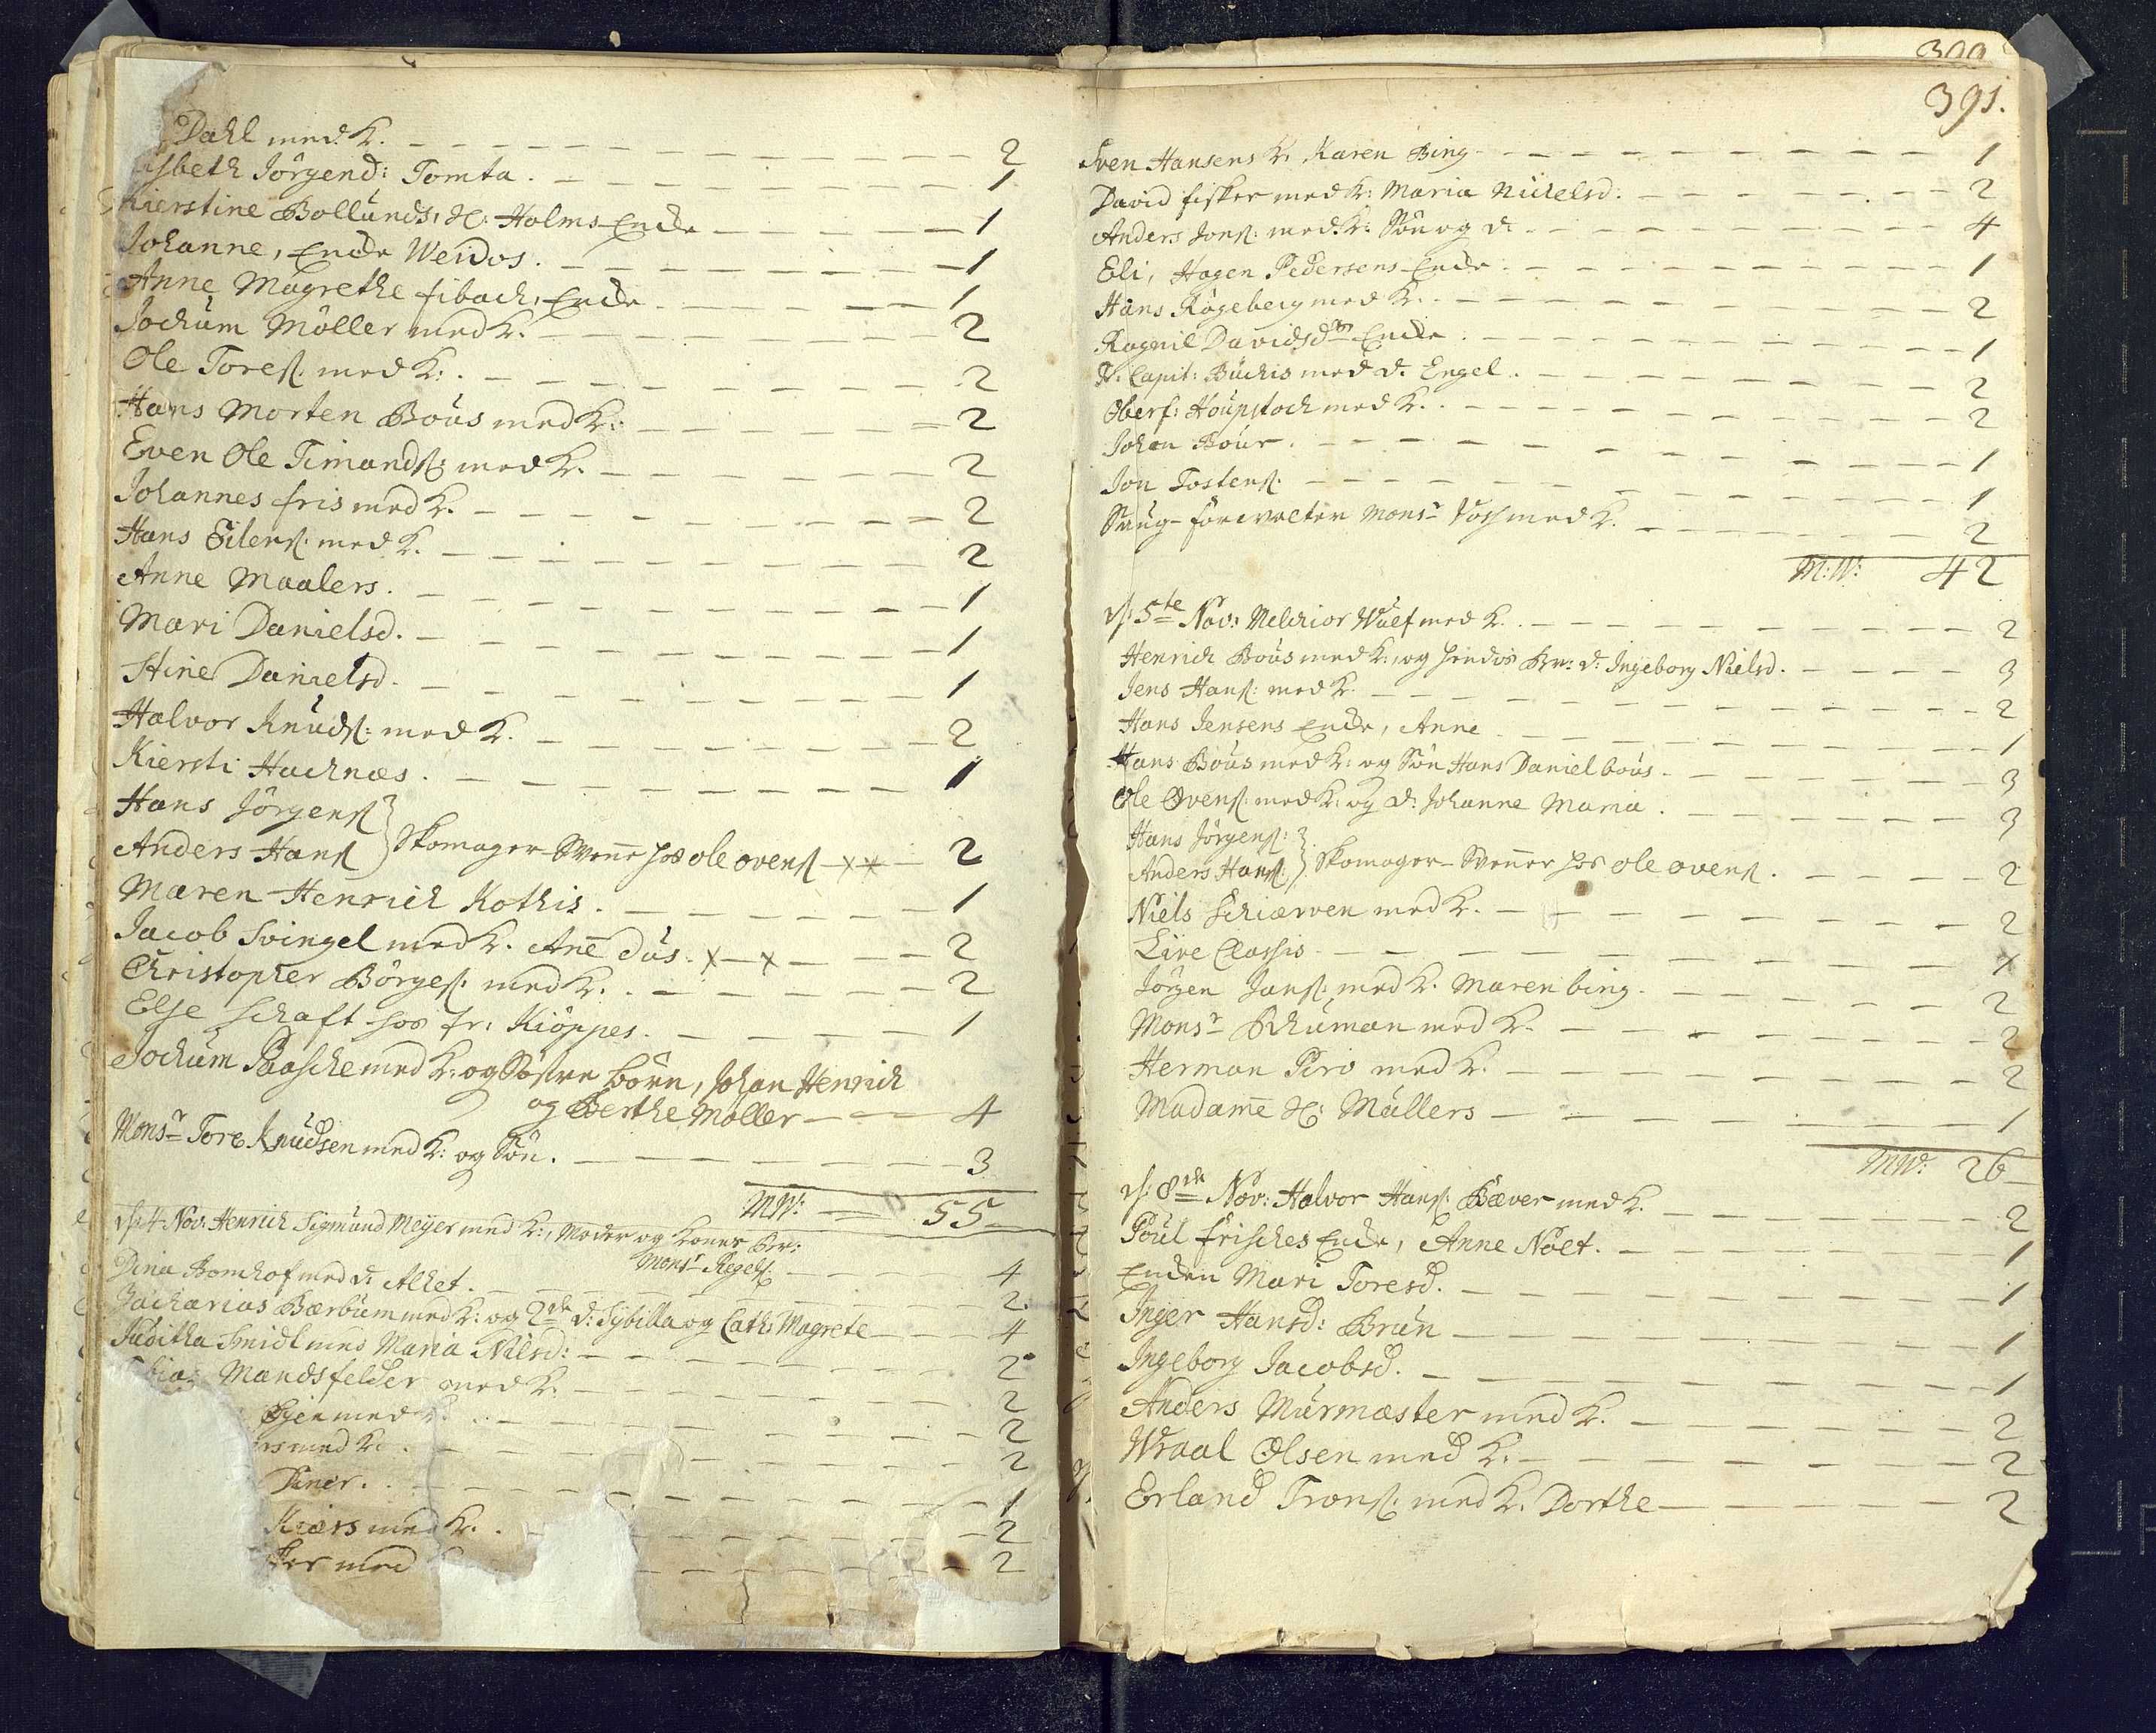 Dahl med K. 2
isbeth Jørgend: Tomta. 1
Kierstine Bollunds, Sl: Holms Encke 1
Johanne, Encke Weidos. 1
Anne Magrethe Fibach, Encke 1
Jochum Møller med K. 2
Ole Toreß. med K: 2
Hans Morten Bous med K: 2
Even Ole Timandß: med K. 2
Johannes Fris med K. 2
Hans Eilerß. med K. 2
Anne Maalers. 1
Mari Danielsd. 1
Stine Danielsd. 1
Halvor Knudß: med K. 2
Kiersti Hachnæs. 1
Hans Jørgenß
Anders Hanß } Skomager-Svenne hos ole ovenß xx 2
Maren Henrich Kothis. 1
Jacob Svingel med K. Anne Dus. x x 2
Christopher Børgeß. med K. 2
Else Schaft hos Fr: Kiøppes. 1
Jochum Paasche med K: og Søstre børn, Johan Henrich
og Berthe Møller 4
Monsr Tore Knudsen med K: og Søn. 3
MN: 55
d. 4. Nov: Henrich Sigmund Meyer med K:, Moder og Koner Br:
Monsr Regelß. 4
Dina Bomhof med D: Alhet. 2
Zacharias Bærbum med K: og 2de D: Sybilla og Cath: Magrete 4
Juditha Smidt med Maria Nilsd: 2
bias Mandsfelder med K. 2
Gien med K. 2
rs med K. 2
Diner. 1
Kiærs med K. 2
ker med 2
399
391.
Sven Hansens K. Karen Bing 1
David fisker med K: Maria Nichelsd. 2
Anders Jonß. med K: Søn og D. 4
Eli, Hagen Pedersens Encke 1
Hans Røgeberg med K. 2
Ragnil Davidsdtr Encke 1
Fr. Capit: Buchis med D. Engel. 2
Oberf: Houpstoch med K. 2
Johan Bour. 1
Jon Tostenß. 1
Saug-forvalter Monsr Voss med K. 2
M:N: 42
d. 5te Nov: Melchior Wulf med K. 2
Henrich Bous med K:, og hendes Br: D: Ingeborg Nielsd. 3
Jens Hanß: med K. 2
Hans Jensens Encke, Anne 1
Hans Bous med K: og Søn Hans Daniel bous. 3
Ole Ovenß: med K: og D: Johanne Maria. 3
Hans Jørgenß:
Anders Hanß: } Skomager-Svenner hos ole ovenß. 2
Niels Schiærven med K. 2
Live Classis 1
Jørgen Janß: med K. Maren bing. 2
Monsr Bchuman med K. 2
Herman Piro med K. 2
Madame Sl: Müllers 1
MN: 26
d. 8de Nov: Halvor Hanß. Bæver med K. 2
Poul Frisches Encke, Anne Nolt. 1
Encken Mari Toresd. 1
Inger Hansd: Brun 1
Ingeborg Jacobsd. 1
Anders Murmæster med K. 2
Wraal Olsen med K. 2
Erland Tronß. med K. Dorthe 2